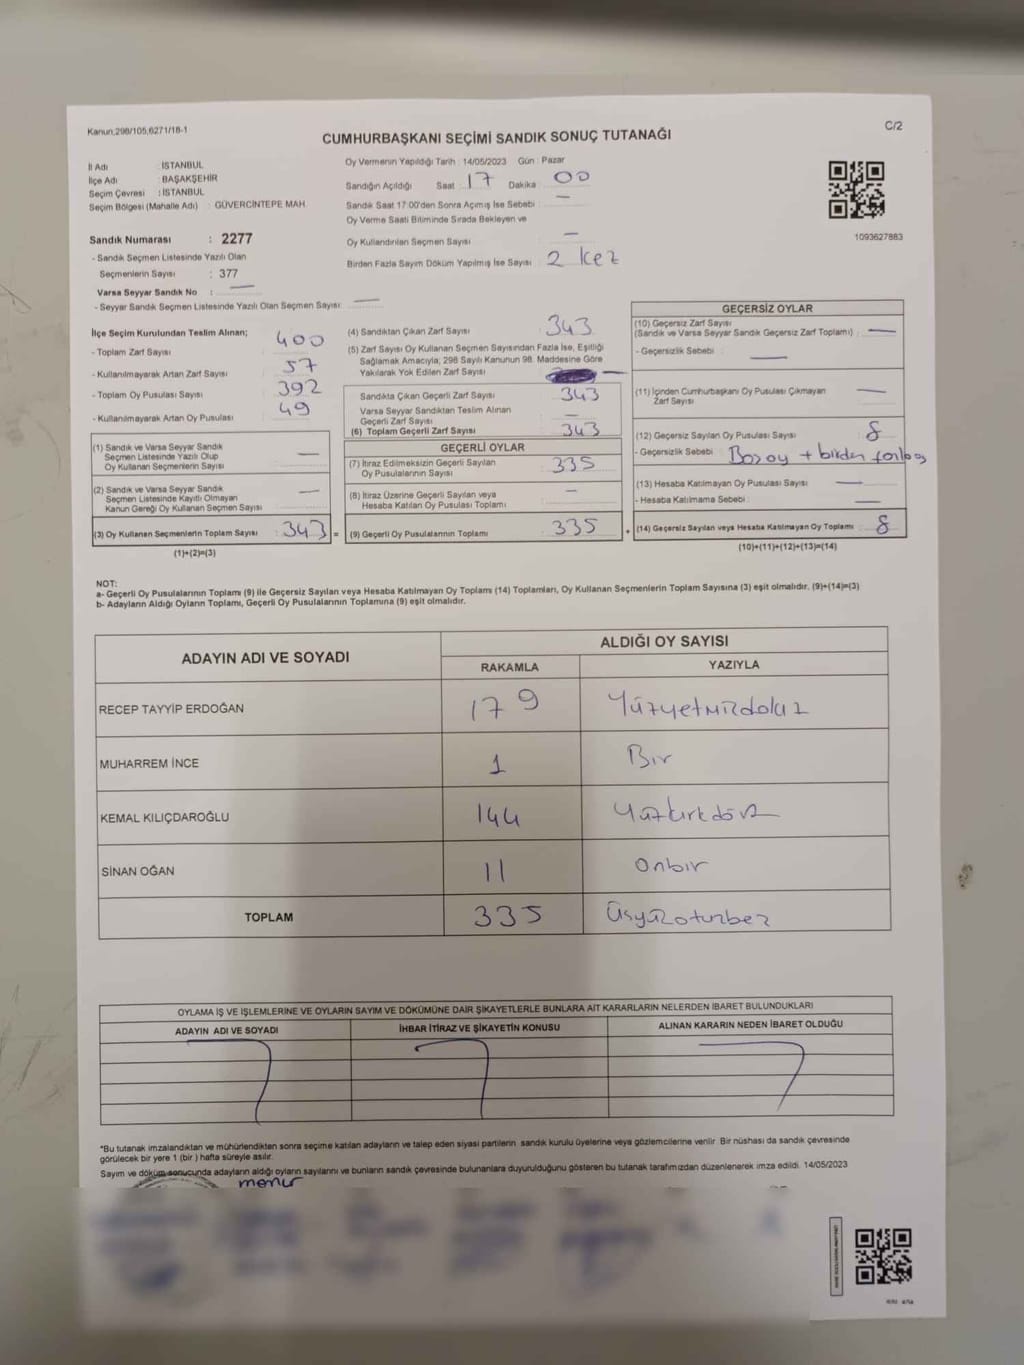 Kanun,298/105,6271/18-1
C/2
CUMHURBAŞKANI SEÇİMİ SANDIK SONUÇ TUTANAĞI
İl Adı : İSTANBUL
İlçe Adı : BAŞAKŞEHİR
Seçim Çevresi : İSTANBUL
Seçim Bölgesi (Mahalle Adı) : GÜVERCİNTEPE MAH.
Sandık Numarası : 2277
- Sandık Seçmen Listesinde Yazılı Olan
Seçmenlerin Sayısı : 377
Varsa Seyyar Sandık No : —
- Seyyar Sandık Seçmen Listesinde Yazılı Olan Seçmen Sayısı : —
Oy Vermenin Yapıldığı Tarih : 14/05/2023 Gün : Pazar
Sandığın Açıldığı Saat : 17 Dakika : 00
Sandık Saat 17:00'den Sonra Açımış İse Sebebi : —
Oy Verme Saati Bitiminde Sırada Bekleyen ve
Oy Kullandırılan Seçmen Sayısı : —
Birden Fazla Sayım Döküm Yapılmış İse Sayısı : 2 kez
1093627883
İlçe Seçim Kurulundan Teslim Alınan;
- Toplam Zarf Sayısı : 400
- Kullanılmayarak Artan Zarf Sayısı : 57
- Toplam Oy Pusulası Sayısı : 392
- Kullanılmayarak Artan Oy Pusulası : 49
(1) Sandık ve Varsa Seyyar Sandık
Seçmen Listesinde Yazılı Olup
Oy Kullanan Seçmenlerin Sayısı : —
(2) Sandık ve Varsa Seyyar Sandık
Seçmen Listesinde Kayıtlı Olmayan
Kanun Gereği Oy Kullanan Seçmen Sayısı : —
(3) Oy Kullanan Seçmenlerin Toplam Sayısı : 343 =
(1)+(2)=(3)
(4) Sandıktan Çıkan Zarf Sayısı : 343
(5) Zarf Sayısı Oy Kullanan Seçmen Sayısından Fazla İse, Eşitliği
Sağlamak Amacıyla; 298 Sayılı Kanunun 98. Maddesine Göre
Yakılarak Yok Edilen Zarf Sayısı : —
Sandıkta Çıkan Geçerli Zarf Sayısı : 343
Varsa Seyyar Sandıktan Teslim Alınan
Geçerli Zarf Sayısı : —
(6) Toplam Geçerli Zarf Sayısı : 343
GEÇERLİ OYLAR
(7) İtiraz Edilmeksizin Geçerli Sayılan
Oy Pusulalarının Sayısı : 335
(8) İtiraz Üzerine Geçerli Sayılan veya
Hesaba Katılan Oy Pusulası Toplamı : —
(9) Geçerli Oy Pusulalarının Toplamı : 335 +
GEÇERSİZ OYLAR
(10) Geçersiz Zarf Sayısı
(Sandık ve Varsa Seyyar Sandık Geçersiz Zarf Toplamı) : —
- Geçersizlik Sebebi : —
(11) İçinden Cumhurbaşkanı Oy Pusulası Çıkmayan
Zarf Sayısı : —
(12) Geçersiz Sayılan Oy Pusulası Sayısı : 8
- Geçersizlik Sebebi : Boş oy + birden fazla oy
(13) Hesaba Katılmayan Oy Pusulası Sayısı : —
- Hesaba Katılmama Sebebi : —
(14) Geçersiz Sayılan veya Hesaba Katılmayan Oy Toplamı : 8
(10)+(11)+(12)+(13)=(14)
NOT:
a- Geçerli Oy Pusulalarının Toplamı (9) ile Geçersiz Sayılan veya Hesaba Katılmayan Oy Toplamı (14) Toplamları, Oy Kullanan Seçmenlerin Toplam Sayısına (3) eşit olmalıdır. (9)+(14)=(3)
b- Adayların Aldığı Oyların Toplamı, Geçerli Oy Pusulalarının Toplamına (9) eşit olmalıdır.
ADAYIN ADI VE SOYADI ALDIĞI OY SAYISI
RAKAMLA YAZIYLA
RECEP TAYYİP ERDOĞAN 179 Yüzyetmişdokuz
MUHARREM İNCE 1 Bir
KEMAL KILIÇDAROĞLU 144 Yüzkırkdört
SİNAN OĞAN 11 Onbir
TOPLAM 335 Üçyüzotuzbeş
OYLAMA İŞ VE İŞLEMLERİNE VE OYLARIN SAYIM VE DÖKÜMÜNE DAİR ŞİKAYETLERLE BUNLARA AİT KARARLARIN NELERDEN İBARET BULUNDUKLARI
ADAYIN ADI VE SOYADI İHBAR İTİRAZ VE ŞİKAYETİN KONUSU ALINAN KARARIN NEDEN İBARET OLDUĞU
*Bu tutanak imzalandıktan ve mühürlendikten sonra seçime katılan adayların ve talep eden siyasi partilerin sandık kurulu üyelerine veya gözlemcilerine verilir. Bir nüshası da sandık çevresinde
görülecek bir yere 1 (bir) hafta süreyle asılır.
Sayım ve döküm sonucunda adayların aldığı oyların sayılarını ve bunların sandık çevresinde bulunanlara duyurulduğunu gösteren bu tutanak tarafımızdan düzenlenerek imza edildi. 14/05/2023